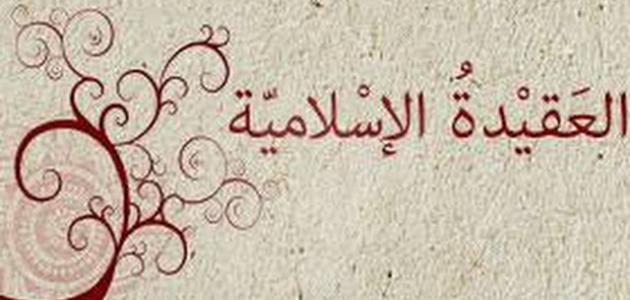 العَقيْدةُ الإسْلاميّة